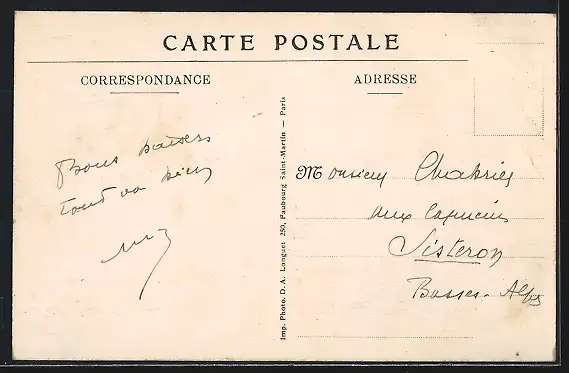 CARTE POSTALE
CORRESPONDANCE
ADRESSE
Bons baisers
tout va bien
Imp. Photo. D. A. Longuet 250, Faubourg Saint-Martin — Paris
Monsieur Chabriey
aux Capucins
Sisteron
Basses-Alpes